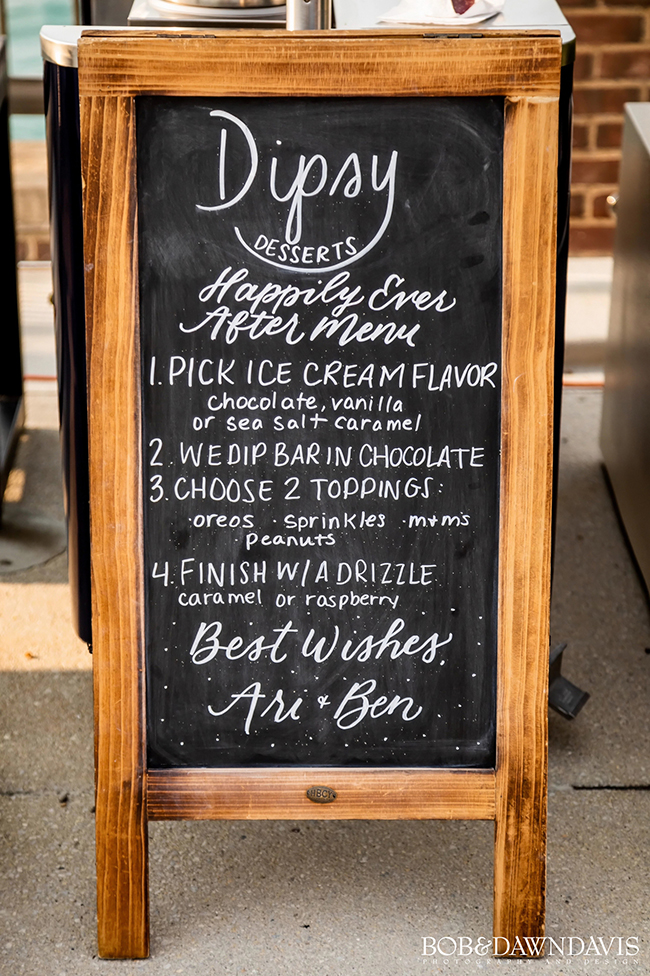 Dipsy
DESSERTS
Happily Ever
After Menu
1. PICK ICE CREAM FLAVOR
chocolate, vanilla
or sea salt caramel
2. WE DIP BAR IN CHOCOLATE
3. CHOOSE 2 TOPPINGS:
·oreos ·sprinkles ·m+m's
peanuts
4. FINISH W/ A DRIZZLE
caramel or raspberry
Best Wishes,
Ari + Ben
HBCY
BOB&DAWNDAVIS
PHOTOGRAPHY AND DESIGN